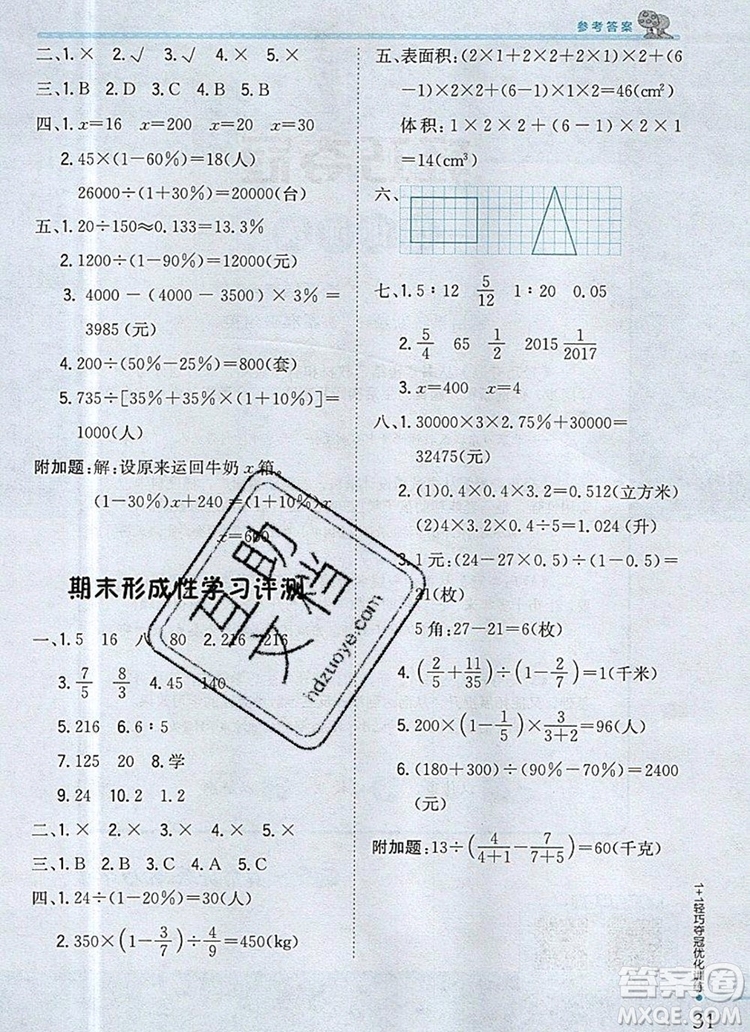 参考答案
二、1.× 2.√ 3.√ 4.× 5.×
三、1.B 2.B 3.A 4.C 5.B
四、1.x=16 x=200 x=20 x=30
2.45×(1-60%)=18(人)
26000÷(1+30%)=20000(台)
五、1.20÷150≈0.133=13.3%
2.1200÷(1-90%)=12000(元)
3. 4000-(4000-3500)×3%=
3985(元)
4.200÷(50%-25%)=800(套)
5.735÷[35%+35%×(1+10%)]=
1000(人)
附加题:解:设原来运回牛奶 x 箱。
(1-30%)x+240=(1+10%)x
x=600
期末形成性学习评测
一、1.5 16 八 80 2.216 216
3.7/5 8/3 4.45 140
5.216 6.6:5
7.125 20 8.学
9.24 10.2 1.2
二、1.× 2.× 3.× 4.× 5.×
三、1.B 2.B 3.C 4.A 5.D
四、1.24÷(1-20%)=30(人)
2.350×(1-3/7)÷4/9=450(kg)
五、表面积:(2×1+2×2+1×2)×2+(6
×1+2×1+6×2-1×2)=46(cm²)
体积:1×2×2+(6-1)×2×1
=14(cm³)
六、
七、1.5:12 5/12 1:20 0.05
2.5/4 65 1/10 2015 1/2017
3.x=400 x=4
八、1.30000×3×2.75%+30000=
32475(元)
2.(1)0.4×0.4×3.2=0.512(立方米)
(2)4×3.2×0.4÷5=1.024(升)
3.1元:(24-27×0.5)÷(1-0.5)=
21(枚)
5角:27-21=6(枚)
4.(2/5+11/35)÷(1-2/7)=1(千米)
5.200×(1-1/5)×3/(3+2)=96(元)
6.(180+300)÷(1-80%)=2400
(元)
附加题:13÷(4/(4+1)-7/(7+5))=60(千克)
互助文档
hdzuoye.com
1+1轻巧夺冠优化训练
31
答案圈
MXQE.COM